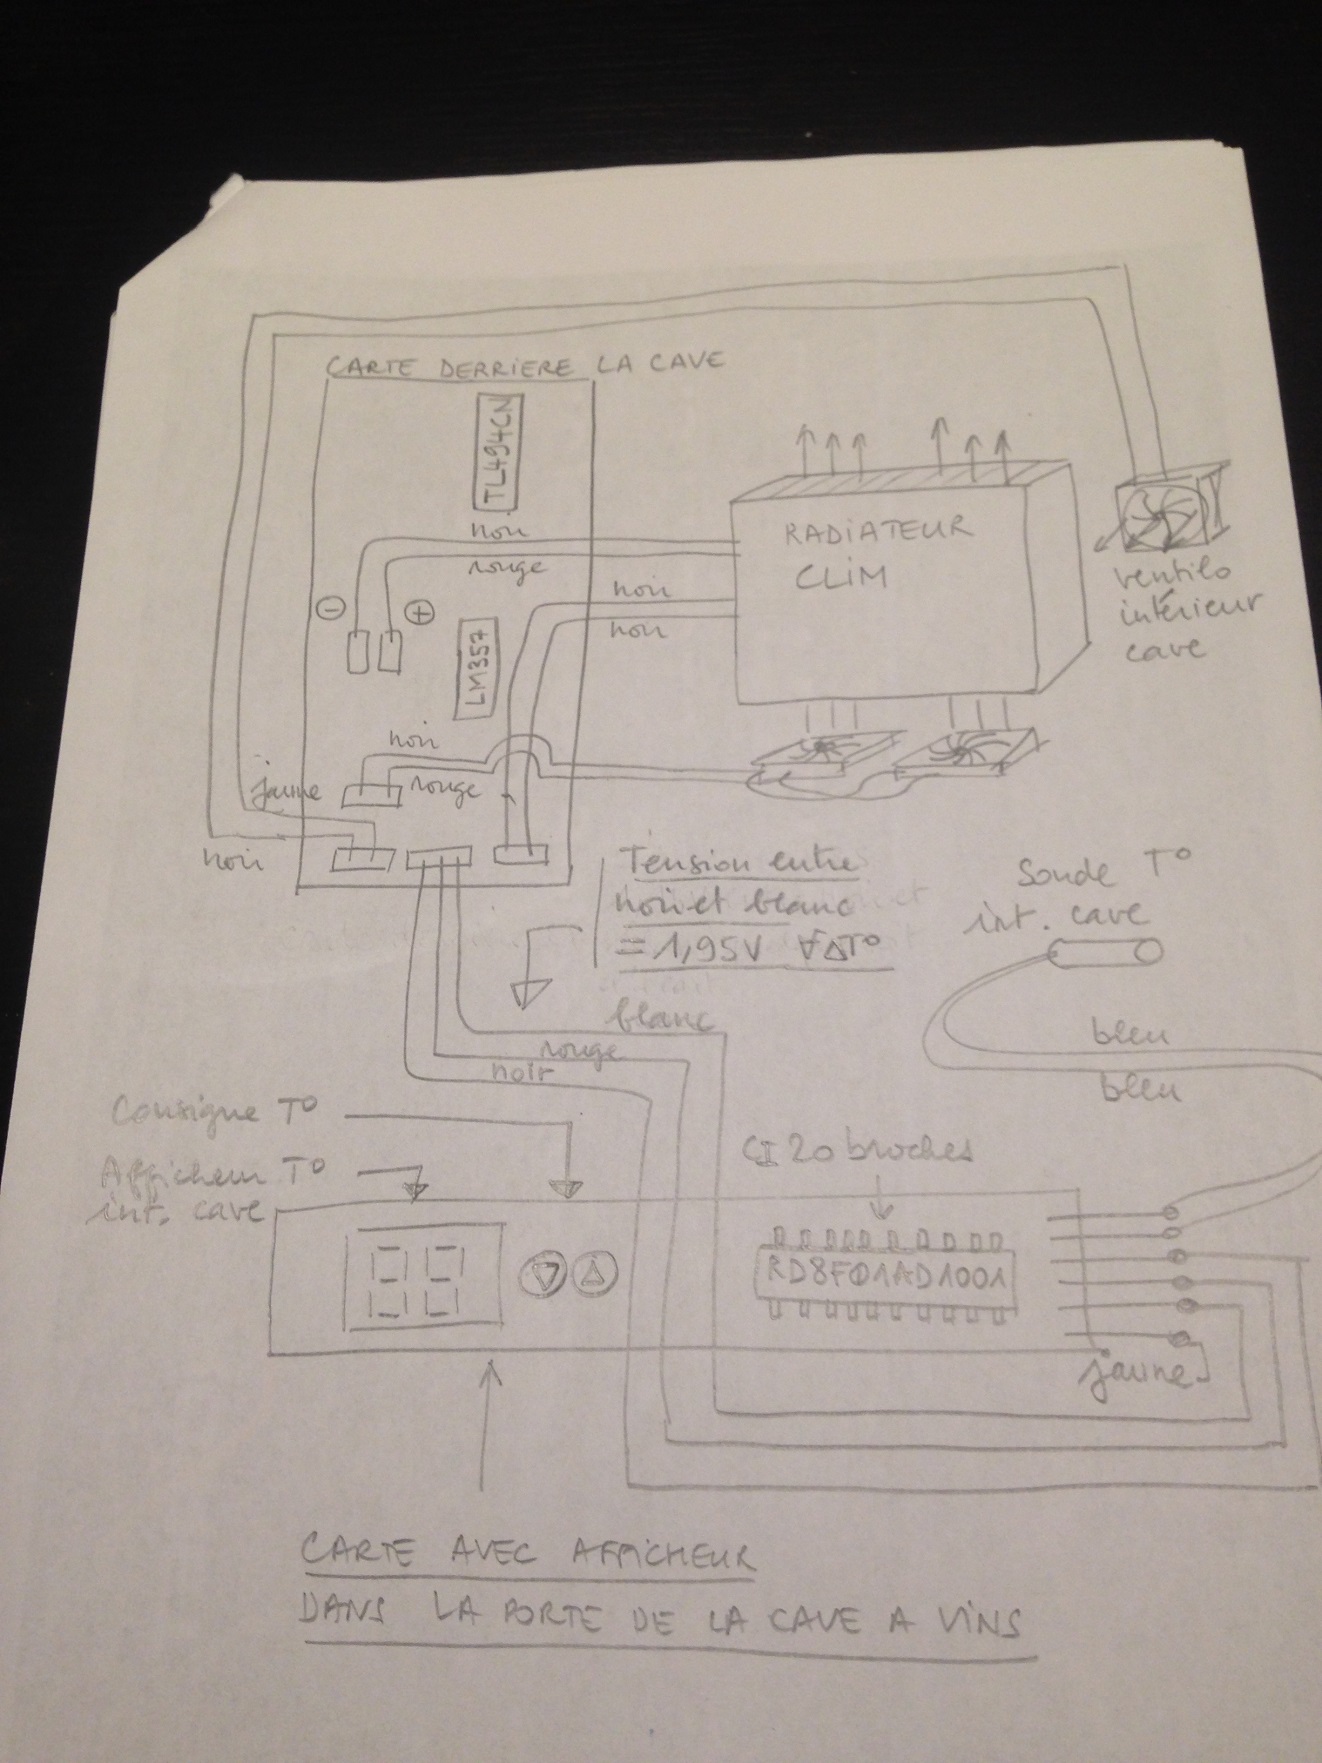 CARTE DERRIERE LA CAVE
TL494CN
noir
rouge
RADIATEUR
CLIM
noir
noir
ventilo
intérieur
cave
LM357
noir
jaune
rouge
noir
Tension entre
noir et blanc
= 1,95V ∀ΔT°
Sonde T°
int. cave
blanc
rouge
noir
bleu
bleu
Consigne T°
Afficheur T°
int. cave
CI 20 broches
RD8F01AD1001
jaune
CARTE AVEC AFFICHEUR
DANS LA PORTE DE LA CAVE A VINS